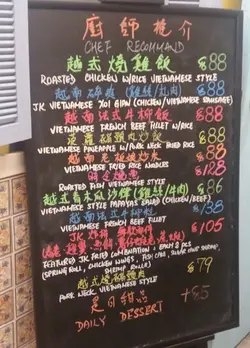 廚師推介
CHEF RECOMMAND
越式燒雞飯 $88
ROASTED CHICKEN W/RICE VIETNAMESE STYLE
$88
JK VIETNAMESE YOI GIAN (CHICKEN/VIETNAMESE SAUSAGE)
越南法式牛柳飯 $88
VIETNAMESE FRENCH BEEF FILLET W/RICE
$88
VIETNAMESE PINEAPPLE W/PORK NECK FRIED RICE
$88
VIETNAMESE FRIED RICE NOODLES
時令燒魚 $128
ROASTED FISH VIETNAMESE STYLE
越式青木瓜沙律(雞絲/牛肉) $86
VIETNAMESE STYLE PAPAYAS SALAD (CHICKEN/BEEF)
越南法式牛柳粒 $138
VIETNAMESE FRENCH BEEF FILLET
JK 炸拼 $105
FEATURED JK FRIED COMBINATION EACH 2 PCS
(SPRING ROLL, CHICKEN WINGS, FISH CAKE, SUGAR CANE SHRIMP, SHRIMP ROLLS)
越式燒豬頸肉 $79
PORK NECK VIETNAMESE STYLE
是日甜品
DAILY DESSERT